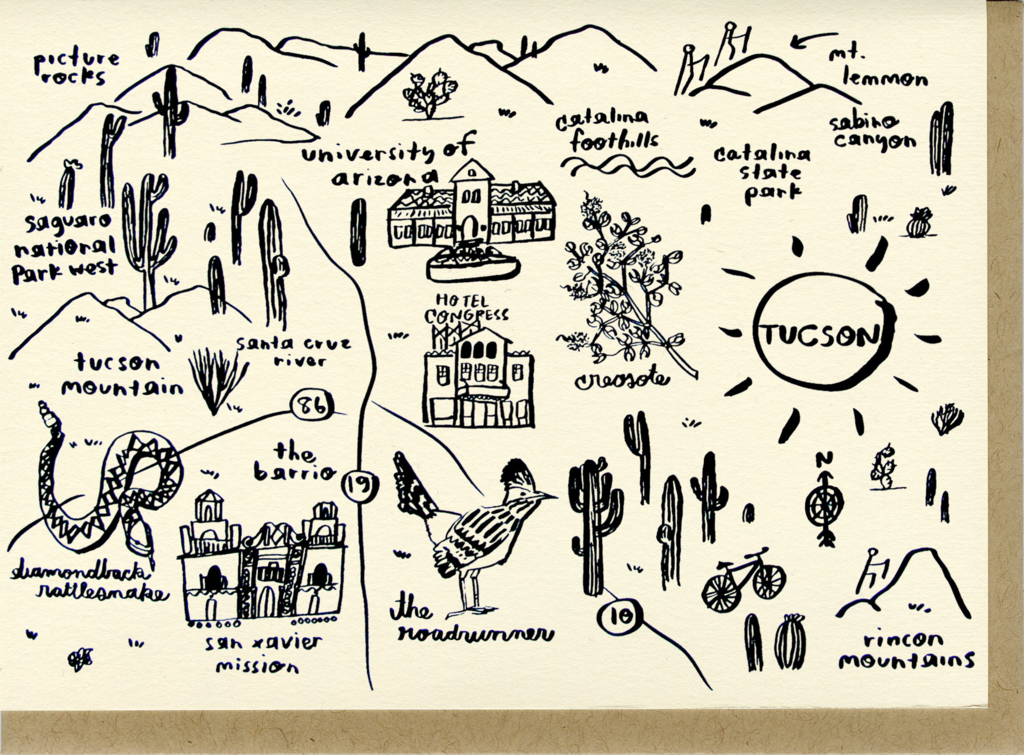 picture
rocks
mt.
lemmon
catalina
foothills
sabino
canyon
university of
arizona
catalina
state
park
saguaro
national
park west
HOTEL
CONGRESS
TUCSON
santa cruz
river
tucson
mountain
creosote
86
the
barrio
19
N
diamondback
rattlesnake
the
roadrunner
10
san xavier
mission
rincon
mountains